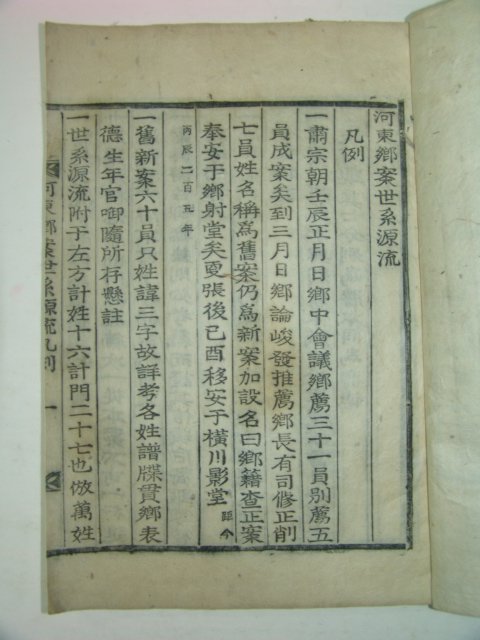 河東鄉案世系源流
凡例
一肅宗朝壬辰正月日鄉中會議鄉薦三十一員別薦五
員成案矣到三月日鄉論峻發推薦鄉長有司修正削
七員姓名稱爲舊案仍爲新案加設名曰鄉籍查正案
奉安于鄉射堂矣更張後己酉移安于橫川影堂距今
丙辰二百五年
一舊新案六十員只姓諱三字故詳考各姓譜牒貫鄉表
德生年官啣隨所存懸註
一世系源流附于左方計姓十六計門二十七也倣萬姓
河東鄉案世系源流凡例 一